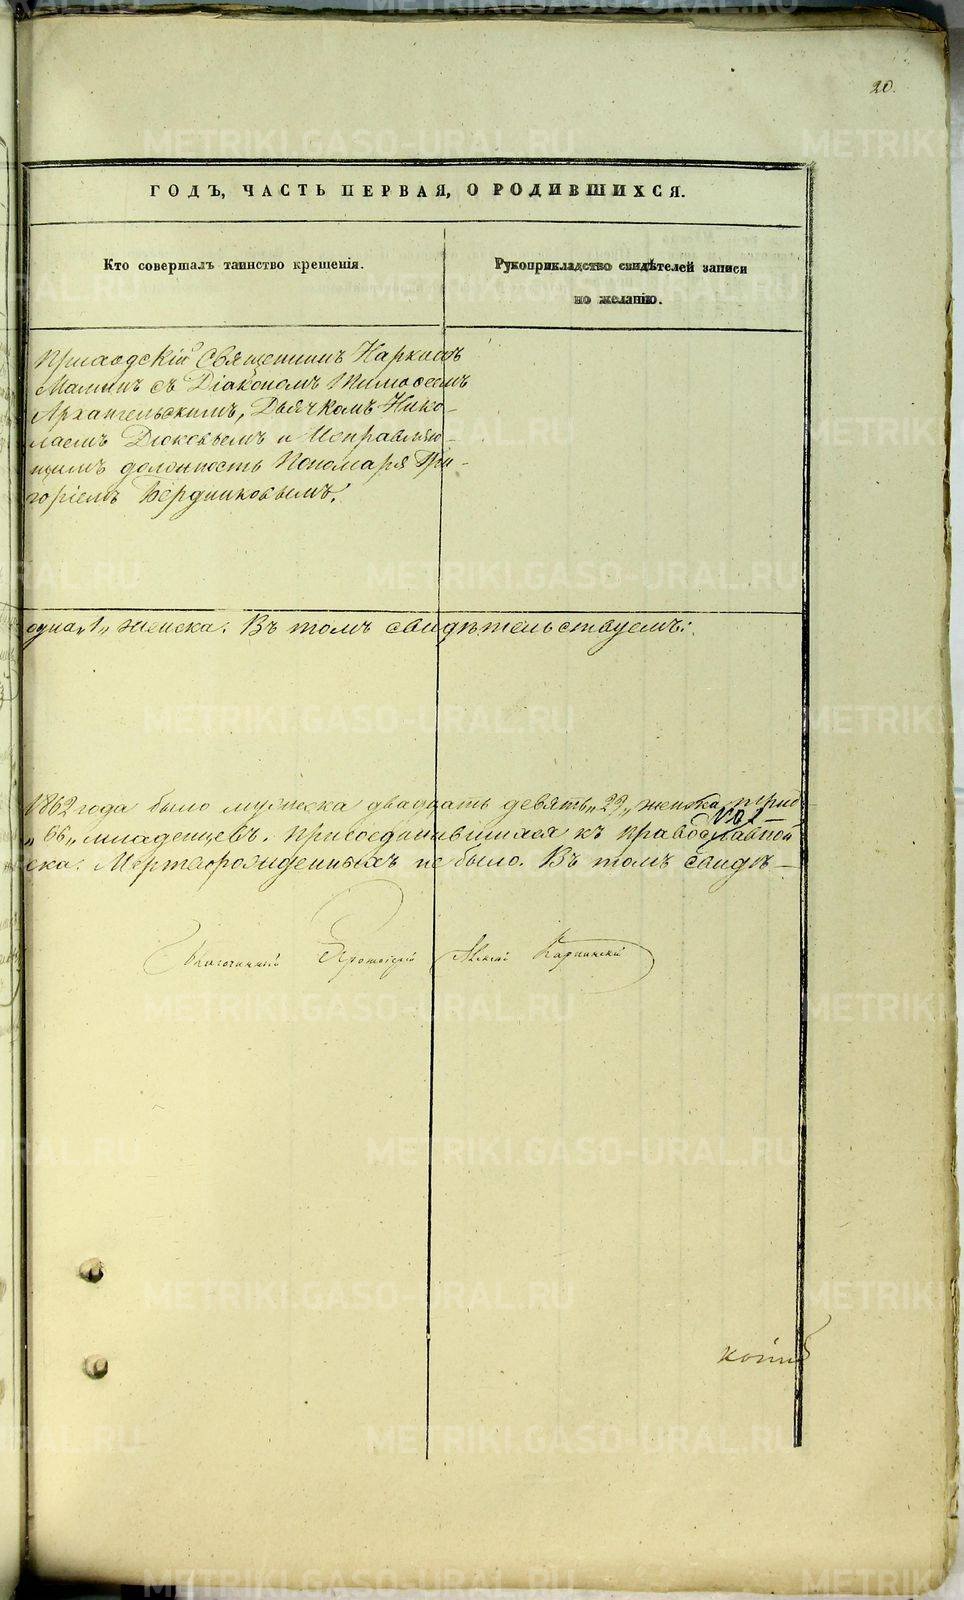 20.
ГОДЪ, ЧАСТЬ ПЕРВАЯ, О РОДИВШИХСЯ.
Кто совершалъ таинство крещенія.
Рукоприкладство свидѣтелей записи
по желанію.
Приходскій Священникъ Наркисъ
Маминъ съ Діакономъ Тимоѳеемъ
Архангельскимъ, Дьячкомъ Нико-
лаемъ Дюковымъ и Исправляю-
щимъ должность Пономаря Гри-
горіемъ Бердниковымъ.
одна „1„ женска. Въ томъ свидѣтельствуемъ:
1862 года было мужеска двадцать девять „29„ женска
„66„ младенцевъ. Присоединившихся къ православной
ска. Мертворожденныхъ не было. Въ томъ свидѣ-
Благочинный Протоіерей Алексій Карпинскій
METRIKI.GASO-URAL.RU